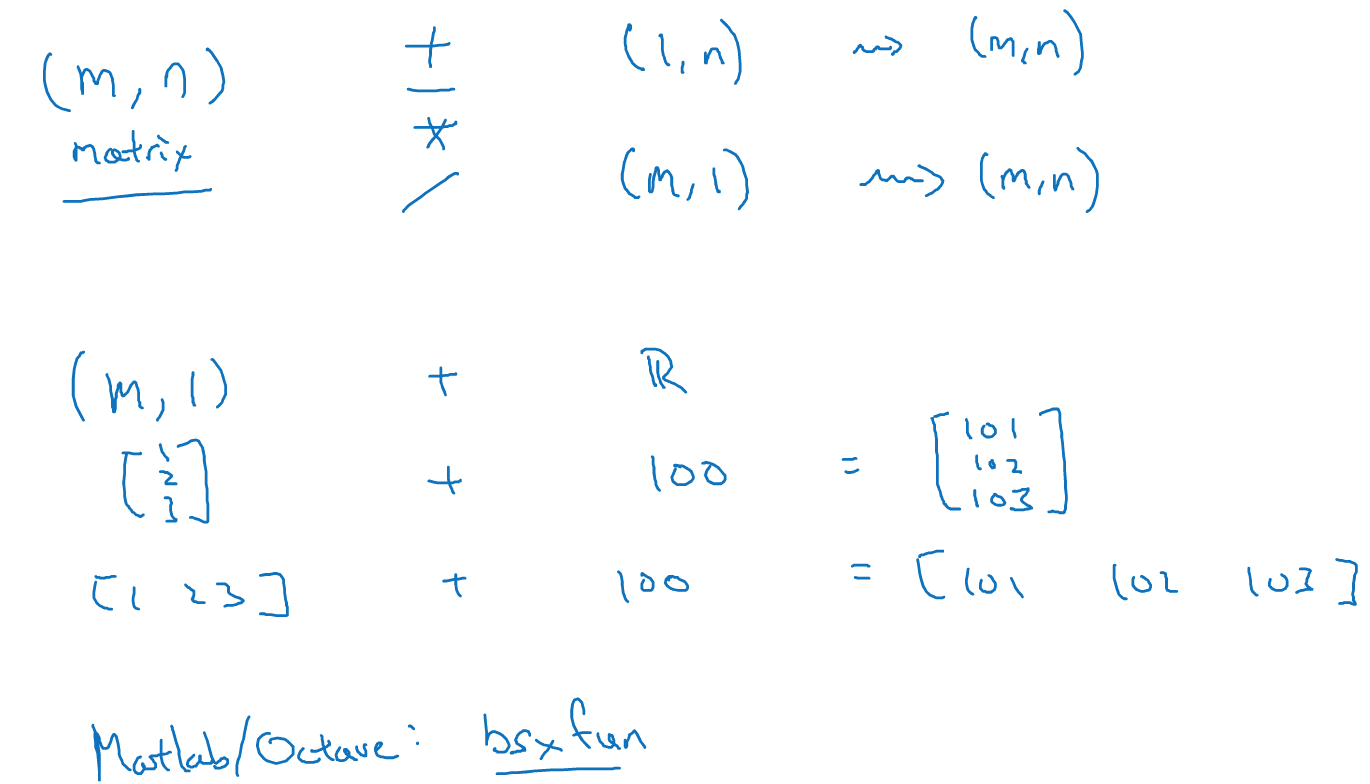 (m, n) + (1, n) ⇝ (m, n)
matrix −
*
/ (m, 1) ⇝ (m, n)
(m, 1) + ℝ
[1 2 3] + 100 = [101 102 103]
[1 2 3] + 100 = [101 102 103]
Matlab/Octave: bsxfun